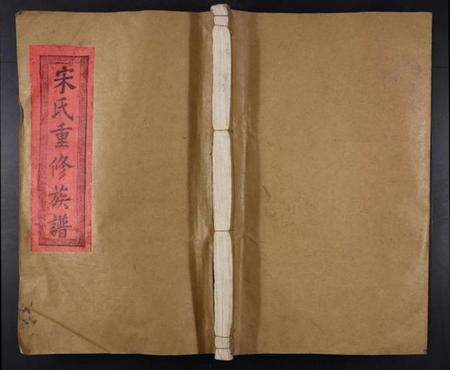 宋氏重修族譜